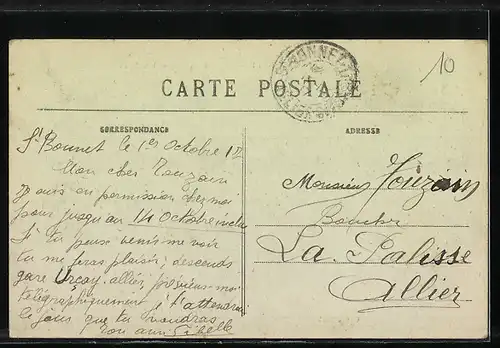 10
BONNET
CARTE POSTALE
CORRESPONDANCE
ADRESSE
St Bonnet le 1er Octobre 12
Mon cher Touzain
suis en permission chez moi
pour jusqu'au 14 Octobre inclus
Si tu peux venir me voir
tu me feras plaisir, descends
gare Urçay allier, préviens-moi
télégraphiquement je t'attendrai
le jour que tu voudras
Ton ami
Monsieur Touzain
Boucher
La Palisse
Allier